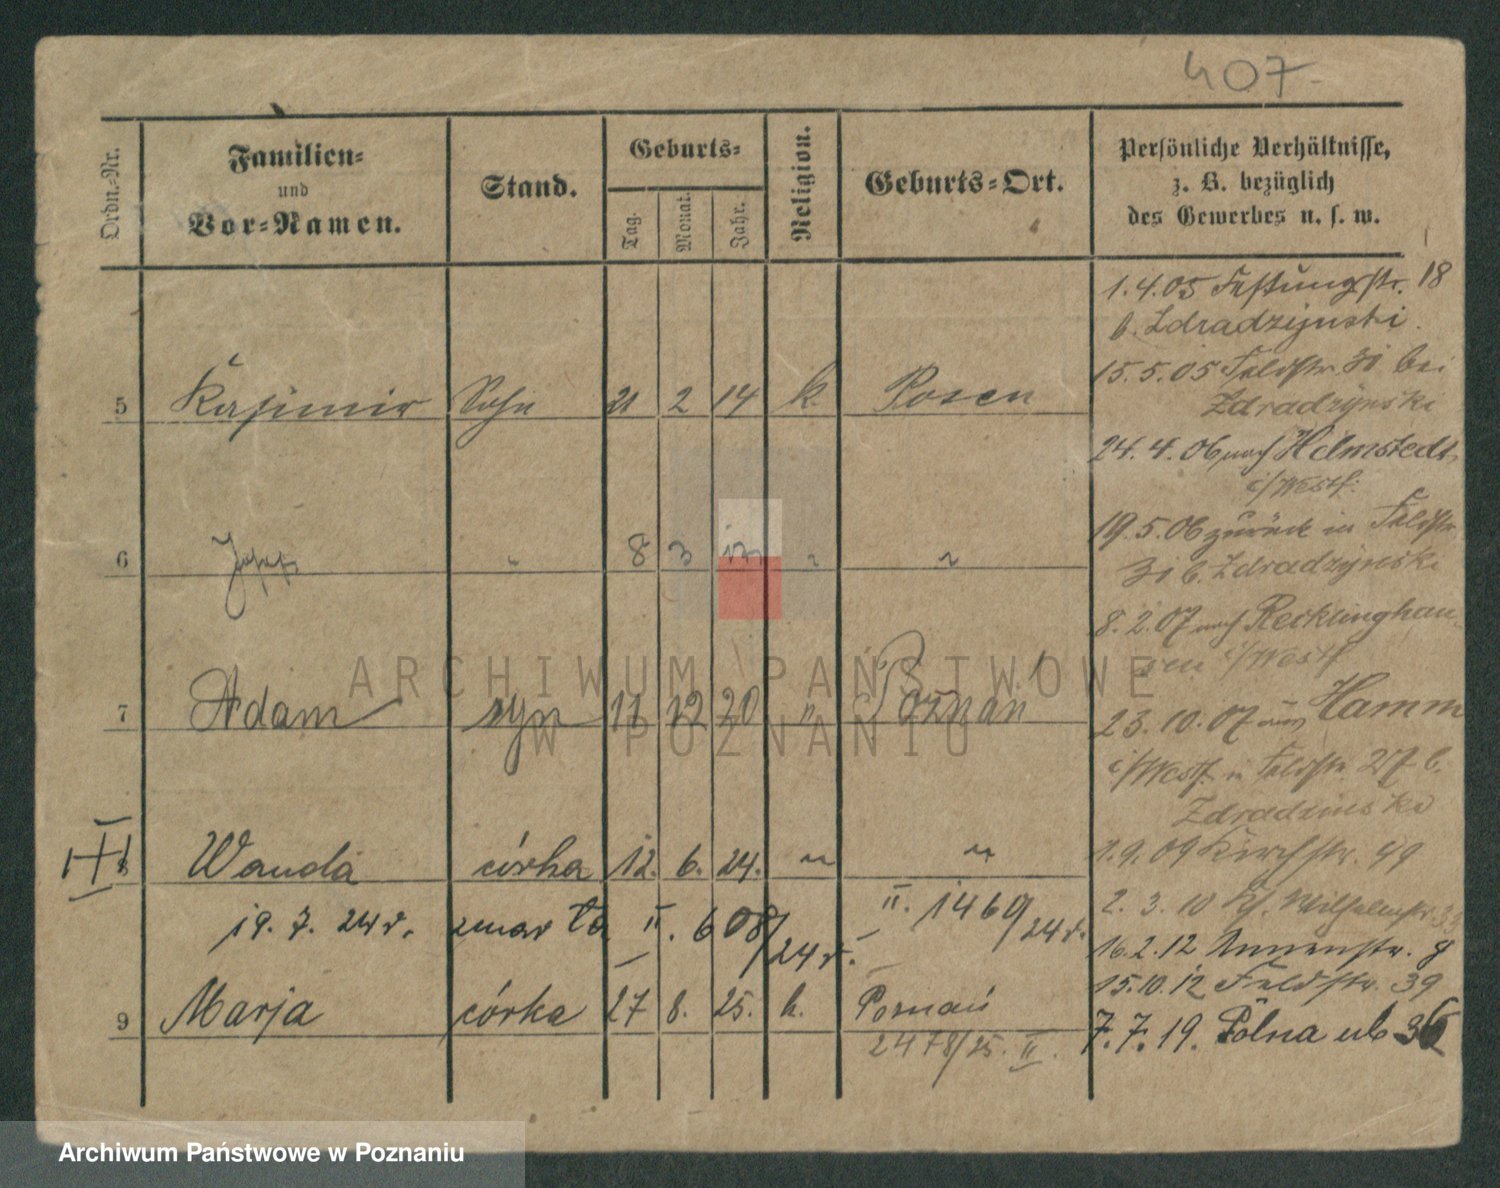 407.
Ordn.-Nr.
Familien-
und
Vor-Namen.
Stand.
Geburts-
Tag.
Monat.
Jahr.
Religion.
Geburts-Ort.
Persönliche Verhältnisse,
z. B. bezüglich
des Gewerbes u. s. w.
1.4.05 Festungsstr. 18
b. Zdradzynski.
15.5.05 Feldstr. 31 bei
Zdradzynski
5 Kasimir Sohn 21 2 14 k Posen
24.4.06 nach Helmstedt
i/Westf.
19.5.06 zurück in Feldstr
31 b. Zdradzynski
6 Josef " 8 3 " "
8.2.07 nach Recklinghau-
sen i/Westf
7 Adam syn 11 12 20 " Poznań
23.10.07 aus Hamm
i/Westf. n Feldstr. 27 b.
Zdradzinski
8 Wanda córka 12. 6. 24. " "
1.9.09 Kirchstr. 49
19. 7. 24 r. zmarła II. 608/24 r. II. 1469/24 r.
2. 3. 10 Wilhelmstr. 33
16.2.12 Annenstr. 8
15.10.12 Feldstr. 39
9 Marja córka 27 8. 25. k. Poznań
7.7.19. Polna ul 36
2478/25. II.
ARCHIWUM PAŃSTWOWE
W POZNANIU
Archiwum Państwowe w Poznaniu